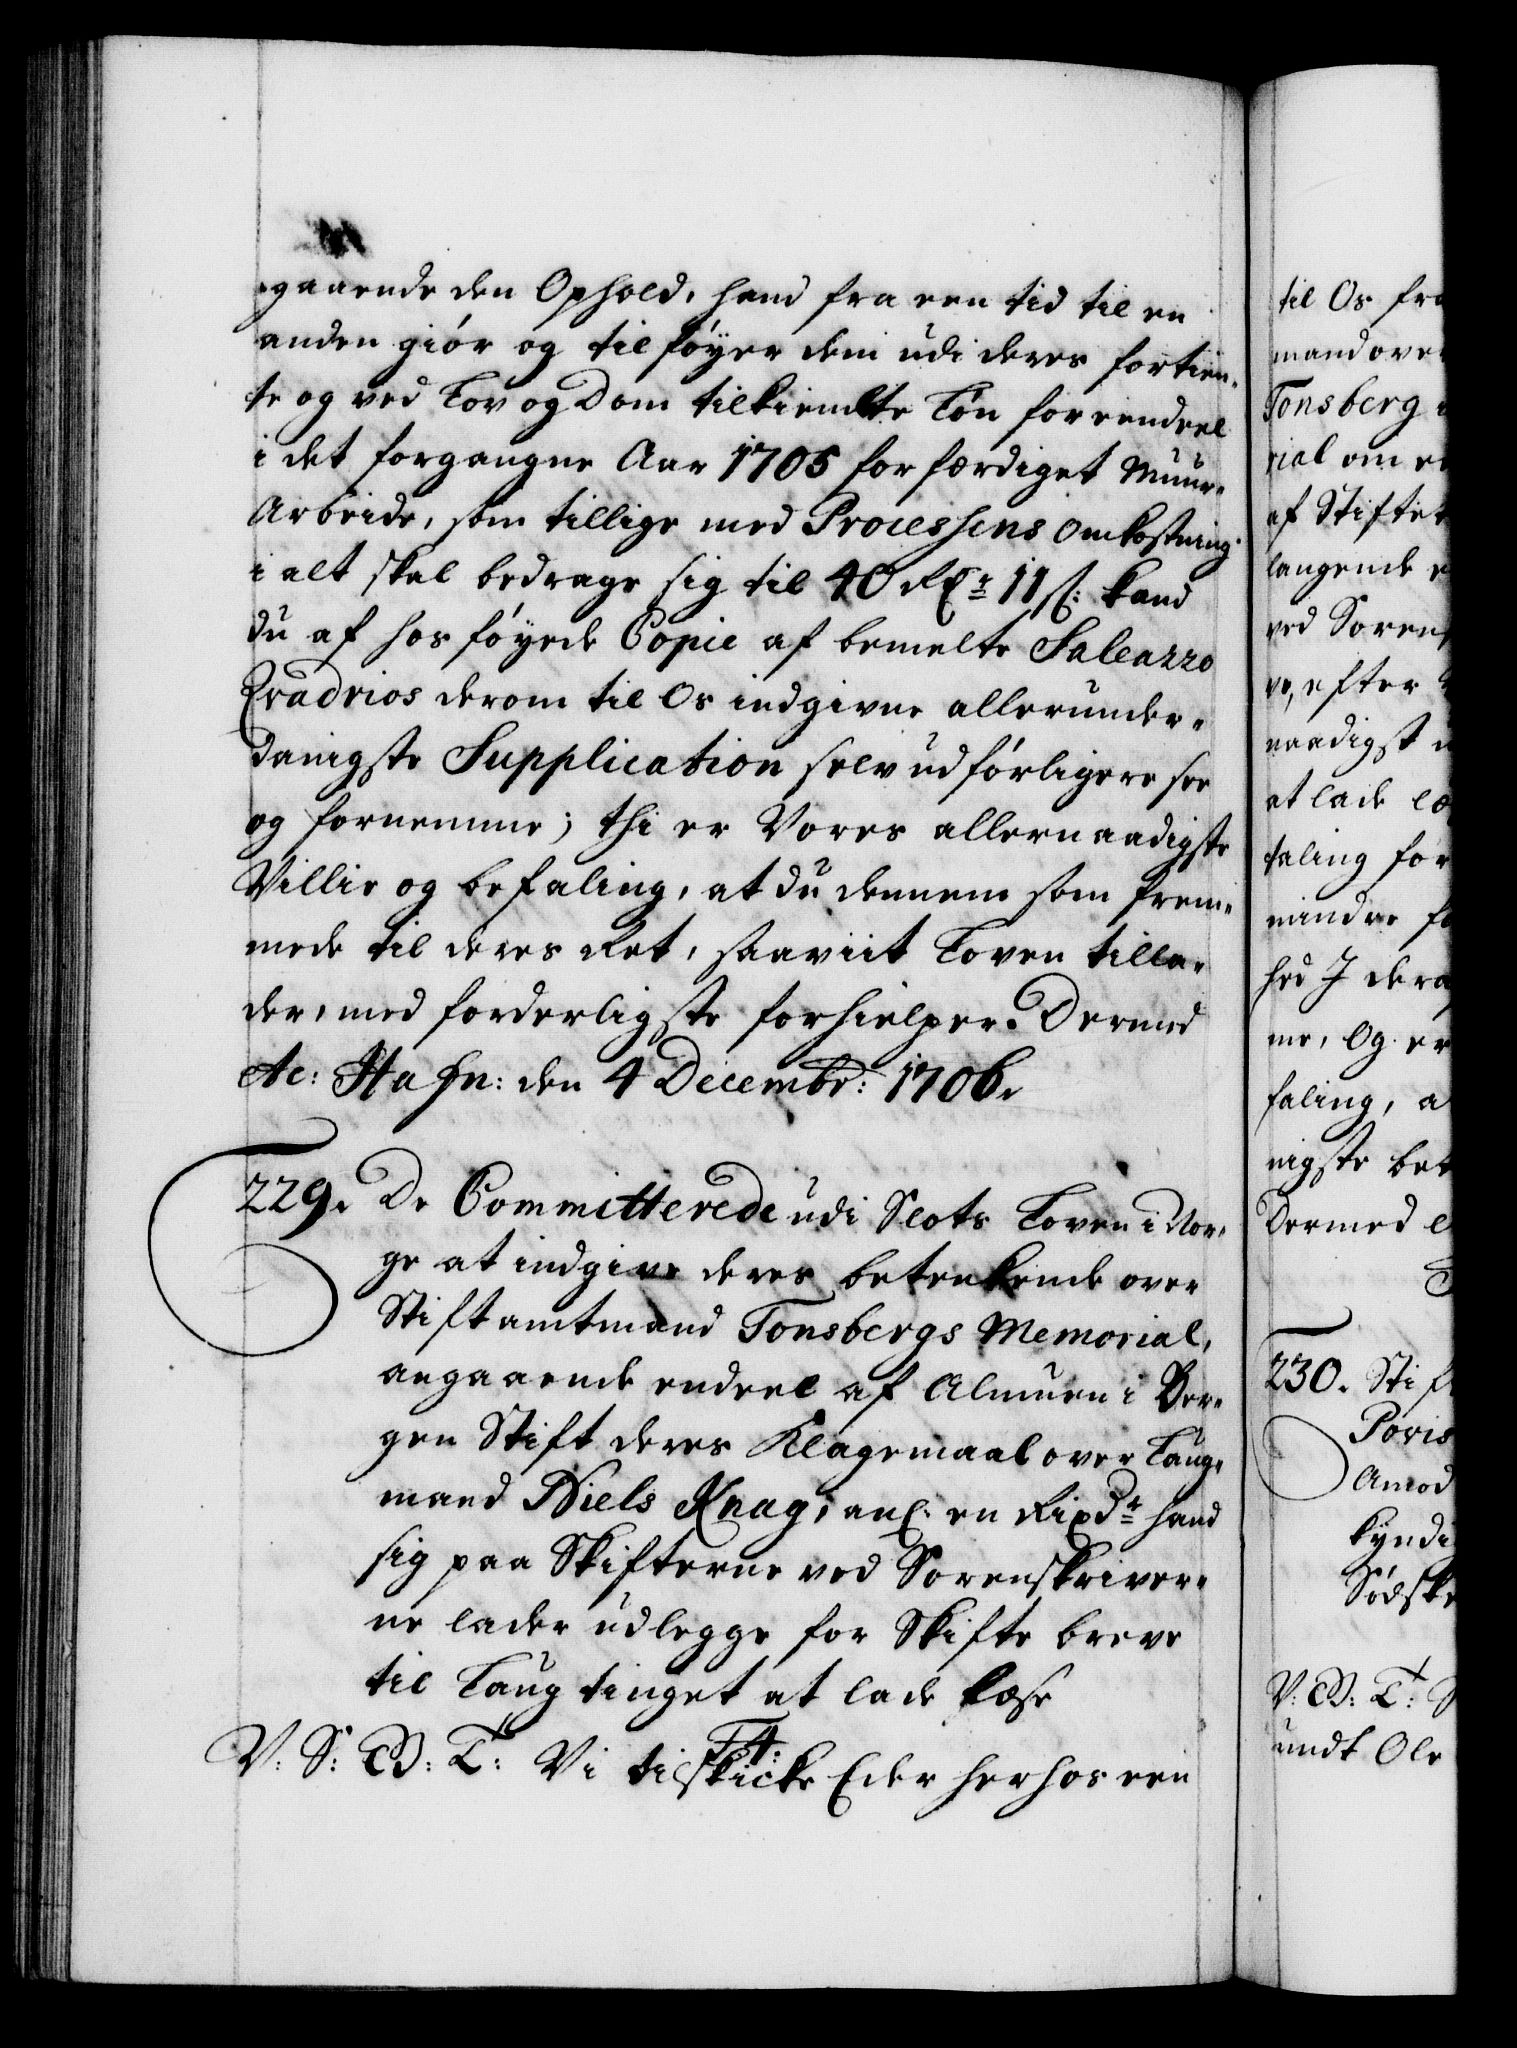 gaaende den Ophold, hand fra een tid til en
anden giør og tilføyer dem udi deres fortien¬
te og ved Lov og Dom tilkiendte Løn for eendeel
i det forgangne Aar 1705 forfærdiget Muur¬
Arbeide, som tillige med Processens Omkostning
i alt skal bedrage sig til 40 Rdr 11 s: kand
du af hosføyede Copie af bemelte Saleazzo
Qvadrios derom til Os indgivne allerunder¬
danigste Supplication selv udførligere see
og fornemme; thi er Vores allernaadigste
Villie og befaling, at du dennem som frem¬
mede til deres Ret, saaviit Loven tilla¬
der, med forderligste forhielper. Dermed
etc: Hafn: den 4 Decembr: 1706.
229. De Committerede udi Slots Loven i Nor¬
ge at indgive deres betenkende over
Stiftamtmand Tonsbergs Memorial,
angaaende endeel af Almuen i Ber¬
gen Stift deres Klagemaal over Laug¬
mand Niels Knag, anl. en Rixdr hand
sig paa Skifterne ved Sorenskriver¬
ne lader udlegge for Skifte breve
til Laugtinget at lade læse
F. 4:
V: S: G: T: Vi tilskicke Eder herhos een
til Os fra
mand over
Tonsberg
rial om en
af Stiftet
langende
ved Soren
ve, efter
naadigst
at lade læ
taling for
mindre
hed I dera
me, Og er
faling, a
nigste bet
Dermed
230. Stif
Povis
Amod
kyndi
Sødske
V: G: T:
undt Ole